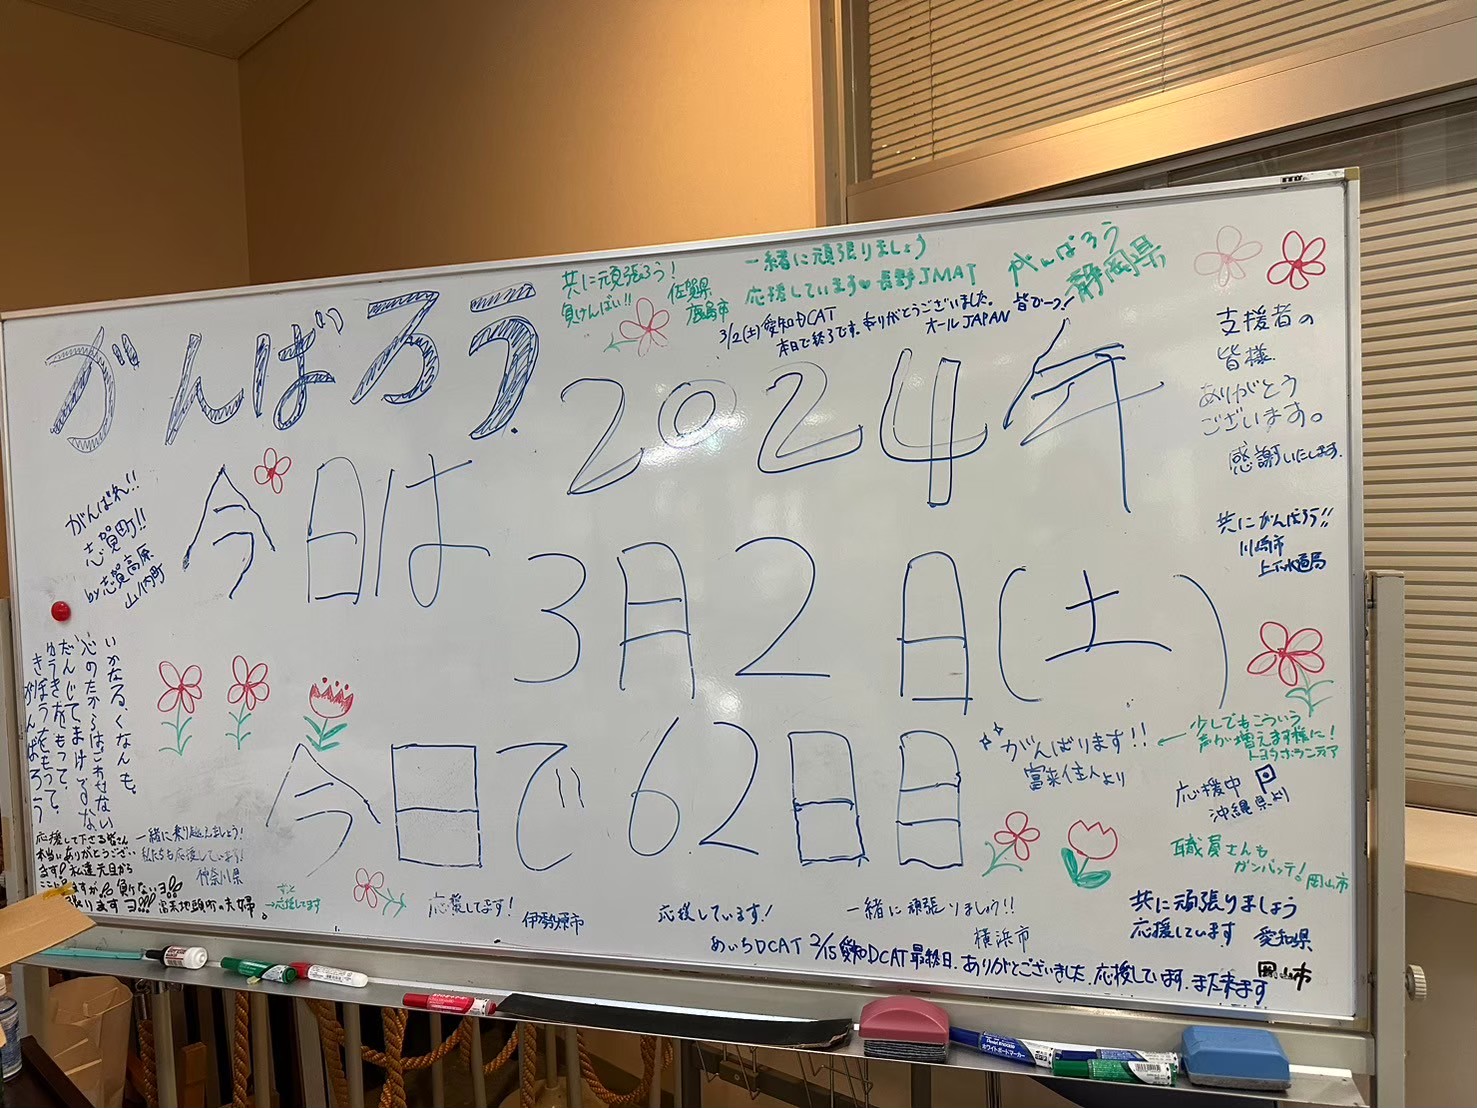 がんばろう
共に頑張ろう!
負けんばい!!
佐賀県
鹿島市
一緒に頑張りましょう
応援しています♥長野JMAT
がんばろう
静岡県
3/2(土)愛知DCAT
本日で終了です。ありがとうございました。
オールJAPAN 皆で一つ!
2024年
支援者の
皆様
ありがとう
ございます。
感謝いたします。
今日は
がんばれ!!
志賀町!!
by志賀高原
山ノ内町
共にがんばろう!!
川崎市
上下水道局
3月2日(土)
いかなる、くなんも、
心のたからはこわせない
だんじてまけるな
ゆうきをもって、
きぼうをもって、
がんばろう
今日で62日目
がんばります!!
富来住人より
少しでもこういう
声が増えます様に!
トヨタボランティア
応援中
沖縄県より
職員さんも
ガンバッテ!岡山市
応援して下さる皆さん
本当にありがとうござい
ます!私達元旦から
ますが負けないヨ!!
張りますヨ!!! 富来地頭町の夫婦。
一緒に乗り越えましょう!
私たちも応援しています!
神奈川県
ずっと
→応援してます
応援してます!
伊勢原市
応援しています!
一緒に頑張りましょう!!
横浜市
共に頑張りましょう
応援しています 愛知県
あいちDCAT 2/15愛知DCAT最終日.ありがとございました.応援しています.また来ます
岡山市
ホワイトボードマーカー